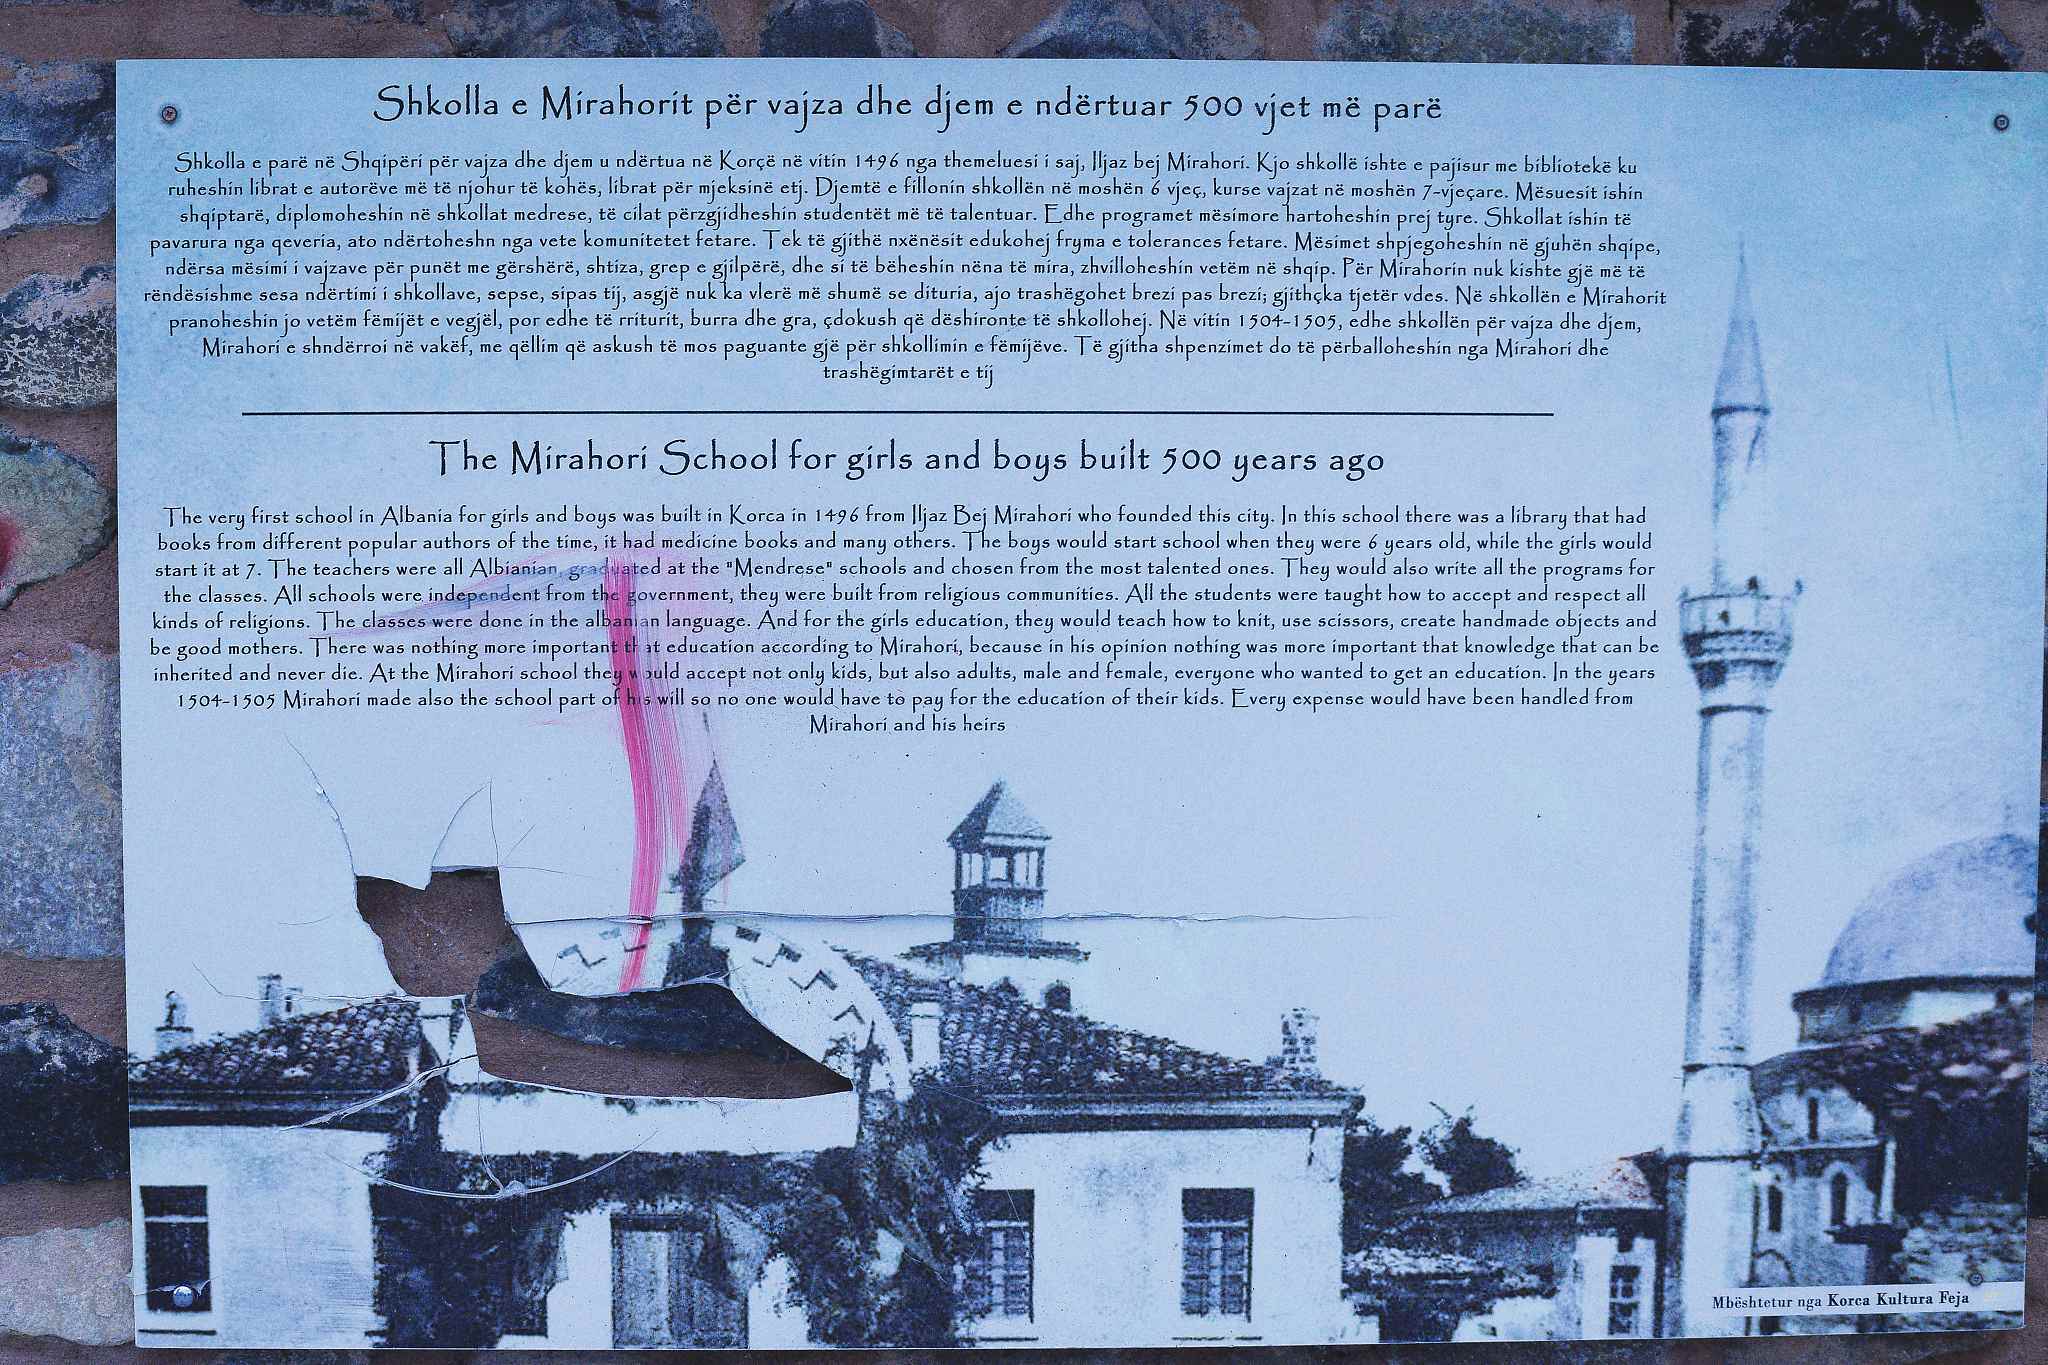 Shkolla e Mirahorit për vajza dhe djem e ndërtuar 500 vjet më parë
Shkolla e parë në Shqipëri për vajza dhe djem u ndërtua në Korçë në vitin 1496 nga themeluesi i saj, Iljaz bej Mirahori. Kjo shkollë ishte e pajisur me bibliotekë ku
ruheshin librat e autorëve më të njohur të kohës, librat për mjeksinë etj. Djemtë e fillonin shkollën në moshën 6 vjeç, kurse vajzat në moshën 7-vjeçare. Mësuesit ishin
shqiptarë, diplomoheshin në shkollat medrese, të cilat përzgjidheshin studentët më të talentuar. Edhe programet mësimore hartoheshin prej tyre. Shkollat ishin të
pavarura nga qeveria, ato ndërtoheshn nga vete komunitetet fetare. Tek të gjithë nxënësit edukohej fryma e tolerances fetare. Mësimet shpjegoheshin në gjuhën shqipe,
ndërsa mësimi i vajzave për punët me gërshërë, shtiza, grep e gjilpërë, dhe si të bëheshin nëna të mira, zhvilloheshin vetëm në shqip. Për Mirahorin nuk kishte gjë më të
rëndësishme sesa ndërtimi i shkollave, sepse, sipas tij, asgjë nuk ka vlerë më shumë se dituria, ajo trashëgohet brezi pas brezi; gjithçka tjetër vdes. Në shkollën e Mirahorit
pranoheshin jo vetëm fëmijët e vegjël, por edhe të rriturit, burra dhe gra, çdokush që dëshironte të shkollohej. Në vitin 1504-1505, edhe shkollën për vajza dhe djem,
Mirahori e shndërroi në vakëf, me qëllim që askush të mos paguante gjë për shkollimin e fëmijëve. Të gjitha shpenzimet do të përballoheshin nga Mirahori dhe
trashëgimtarët e tij
The Mirahori School for girls and boys built 500 years ago
The very first school in Albania for girls and boys was built in Korca in 1496 from Iljaz Bej Mirahori who founded this city. In this school there was a library that had
books from different popular authors of the time, it had medicine books and many others. The boys would start school when they were 6 years old, while the girls would
start it at 7. The teachers were all Albianian, graduated at the "Mendrese" schools and chosen from the most talented ones. They would also write all the programs for
the classes. All schools were independent from the government, they were built from religious communities. All the students were taught how to accept and respect all
kinds of religions. The classes were done in the albanian language. And for the girls education, they would teach how to knit, use scissors, create handmade objects and
be good mothers. There was nothing more important that education according to Mirahori, because in his opinion nothing was more important that knowledge that can be
inherited and never die. At the Mirahori school they would accept not only kids, but also adults, male and female, everyone who wanted to get an education. In the years
1504-1505 Mirahori made also the school part of his will so no one would have to pay for the education of their kids. Every expense would have been handled from
Mirahori and his heirs
Mbështetur nga Korca Kultura Feja